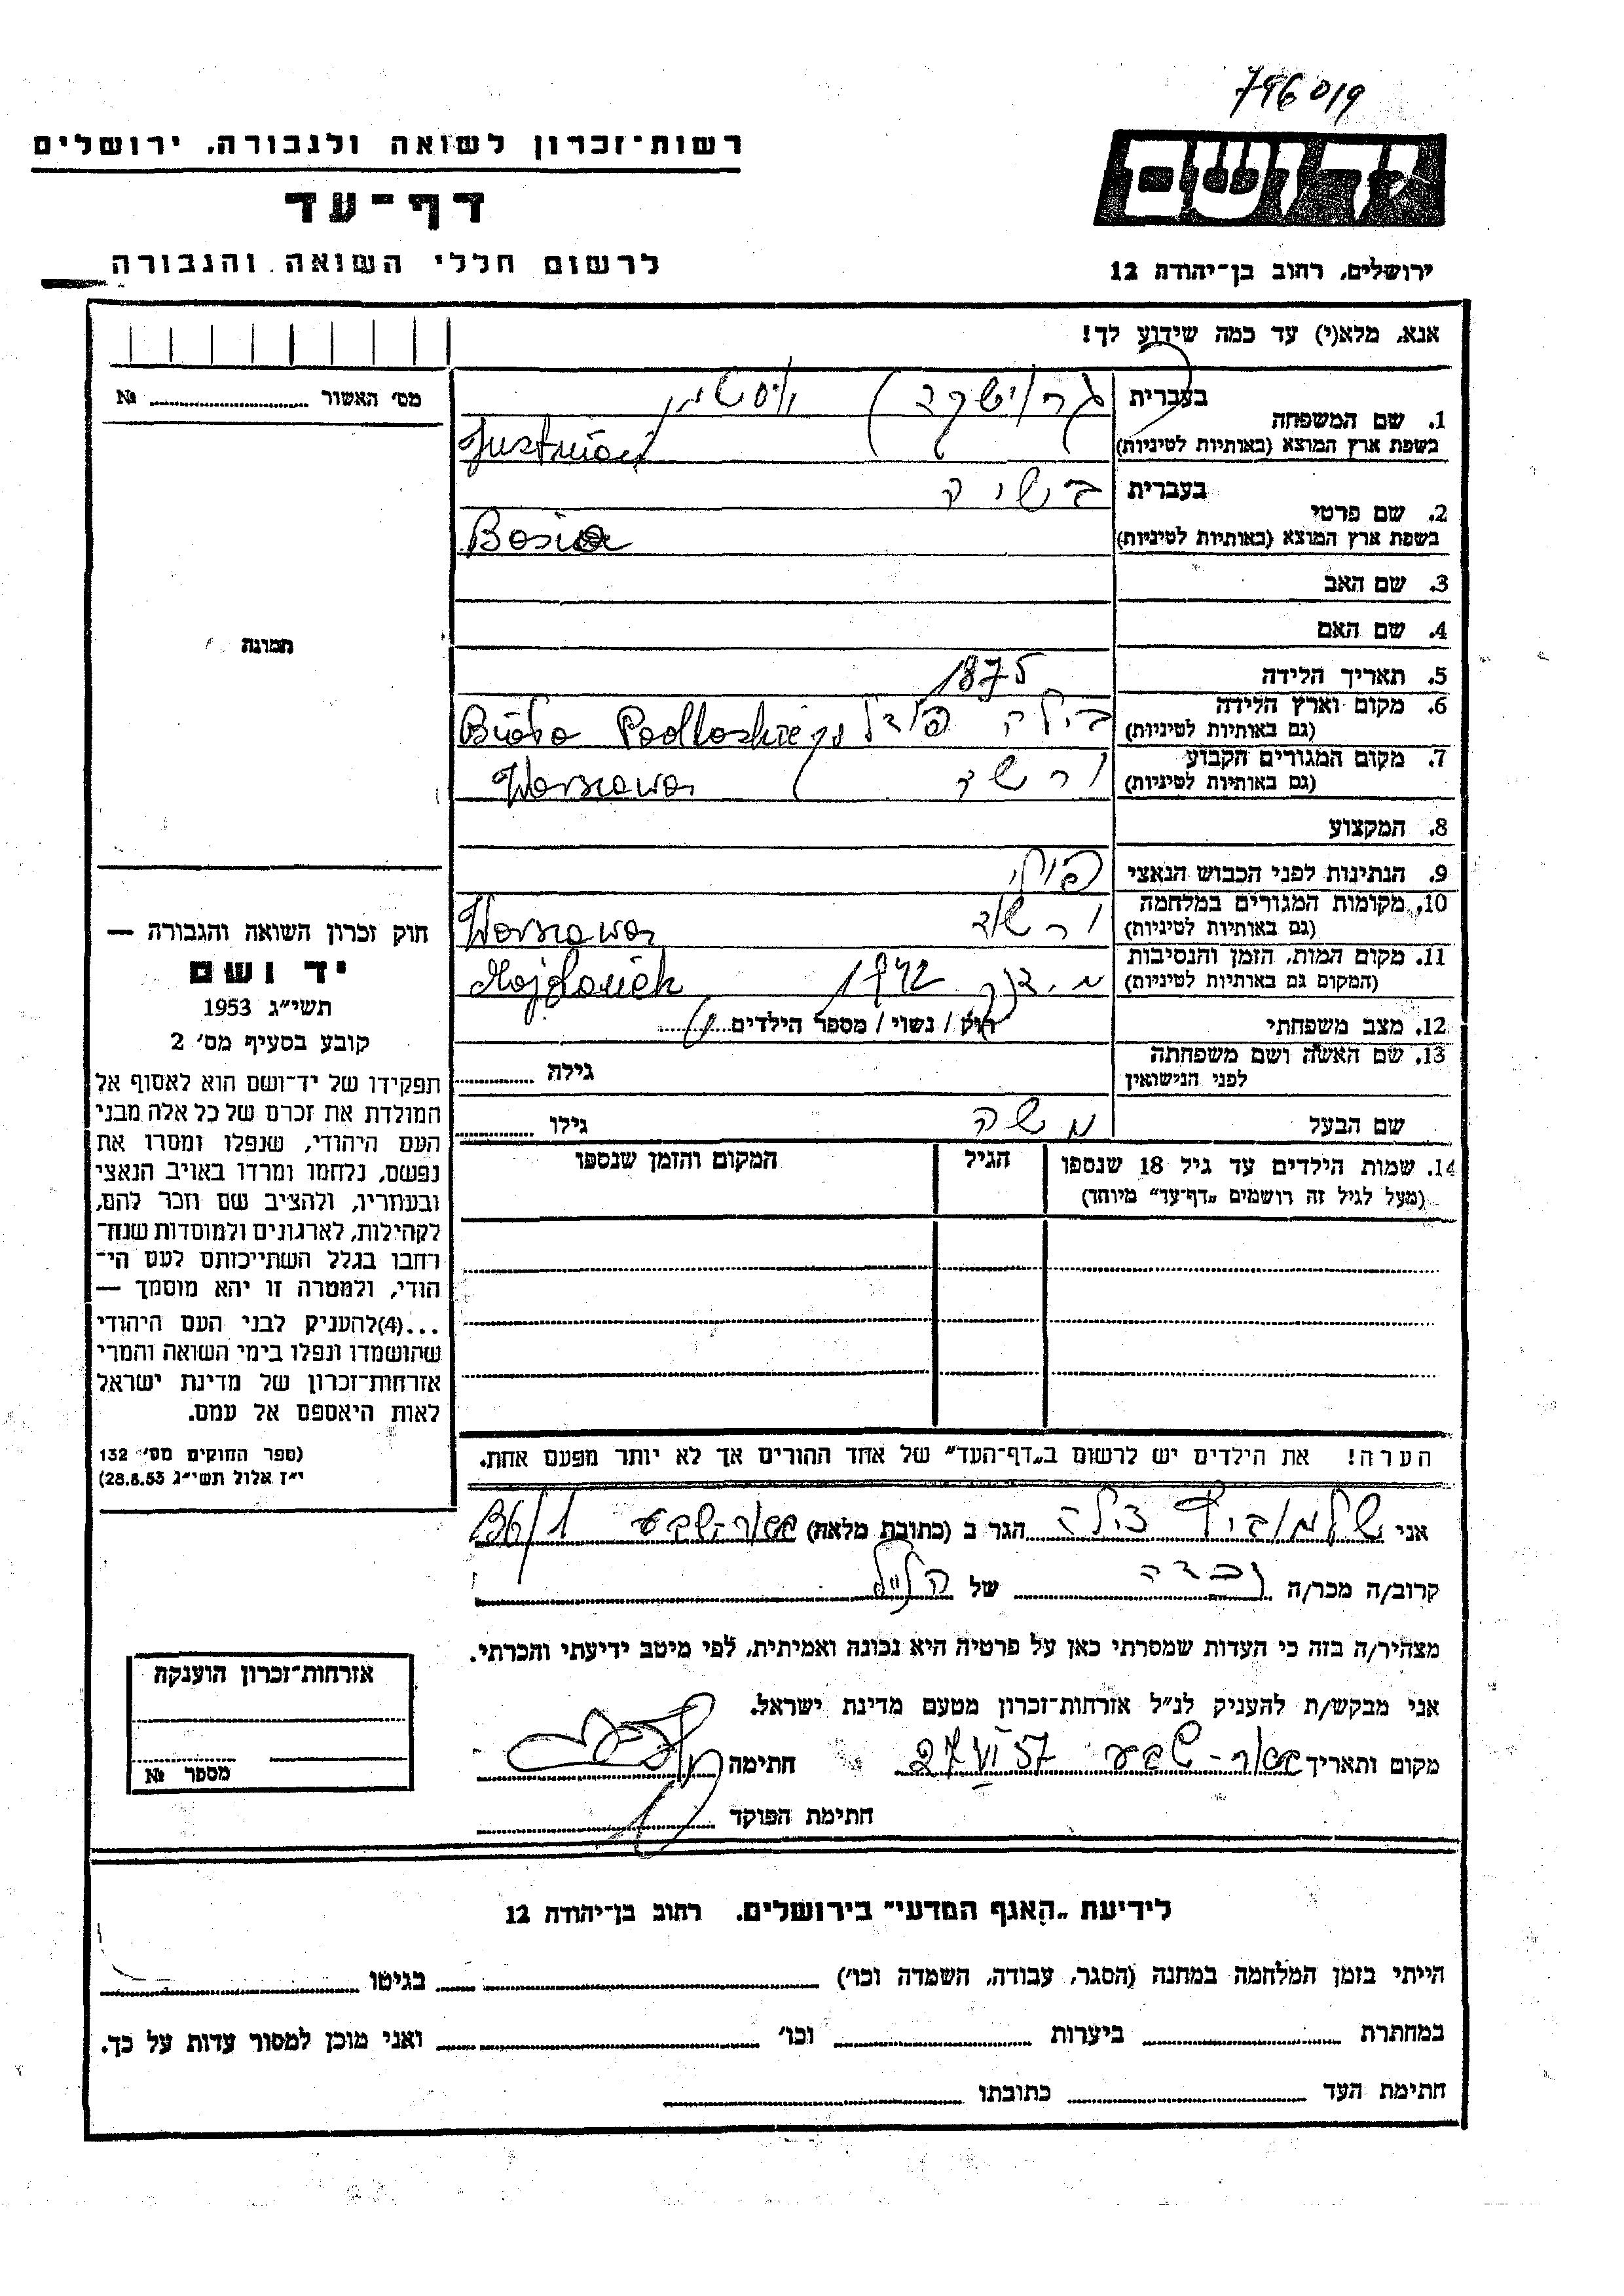 796019
יד ושם
רשות־זכרון לשואה ולגבורה. ירושלים
דף־עד
לרשום חללי השואה והגבורה
ירושלים, רחוב בן־יהודה 12
אנא, מלא(י) עד כמה שידוע לך!
מס׳ האשור № 
1. שם המשפחה בעברית
בשפת ארץ המוצא (באותיות לטיניות)
2. שם פרטי בעברית בשיה
בשפת ארץ המוצא (באותיות לטיניות) Basia
3. שם האב
4. שם האם
תמונה
5. תאריך הלידה 1875
6. מקום וארץ הלידה
(גם באותיות לטיניות) בילה פודל Podlaskiego
7. מקום המגורים הקבוע
(גם באותיות לטיניות) ורשה Warszawa
8. המקצוע
9. הנתינות לפני הכבוש הנאצי פולני
10. מקומות המגורים במלחמה
(גם באותיות לטיניות) ורשה Warszawa
11. מקום המות, הזמן והנסיבות
(המקום גם באותיות לטיניות) 1942 Majdanek
12. מצב משפחתי רוק / נשוי / מספר הילדים
13. שם האשה ושם משפחתה
לפני הנישואין גילה
שם הבעל משה גילו
14. שמות הילדים עד גיל 18 שנספו הגיל המקום והזמן שנספו
(מעל לגיל זה רושמים „דף־עד״ מיוחד)
חוק זכרון השואה והגבורה —
יד ושם
תשי״ג 1953
קובע בסעיף מס׳ 2
תפקידו של יד־ושם הוא לאסוף אל
המולדת את זכרם של כל אלה מבני
העם היהודי, שנפלו ומסרו את
נפשם, נלחמו ומרדו באויב הנאצי
ובעוזריו, ולהציב שם וזכר להם,
לקהילות, לארגונים ולמוסדות שנח־
רבו בגלל השתייכותם לעם הי־
הודי, ולמטרה זו יהא מוסמך —
...(4)להעניק לבני העם היהודי
שהושמדו ונפלו בימי השואה והמרי
אזרחות־זכרון של מדינת ישראל
לאות היאספם אל עמם.
(ספר החוקים מס׳ 132
י״ז אלול תשי״ג 28.8.53)
הערה! את הילדים יש לרשום ב„דף־העד״ של אחד ההורים אך לא יותר מפעם אחת.
אני צילה הגר ב (כתובת מלאה) באר־שבע 136/1
קרוב/ה מכר/ה נכדה של הנ״ל
מצהיר/ה בזה כי העדות שמסרתי כאן על פרטיה היא נכונה ואמיתית, לפי מיטב ידיעתי והכרתי.
אני מבקש/ת להעניק לנ״ל אזרחות־זכרון מטעם מדינת ישראל.
מקום ותאריך באר־שבע 27 VI 57 חתימה
חתימת הפוקד
אזרחות־זכרון הוענקה
מספר №
לידיעת „האגף המדעי״ בירושלים. רחוב בן־יהודה 12
הייתי בזמן המלחמה במחנה (הסגר, עבודה, השמדה וכו׳) בגיטו
במחתרת ביערות וכו׳ ואני מוכן למסור עדות על כך.
חתימת העד כתובתו